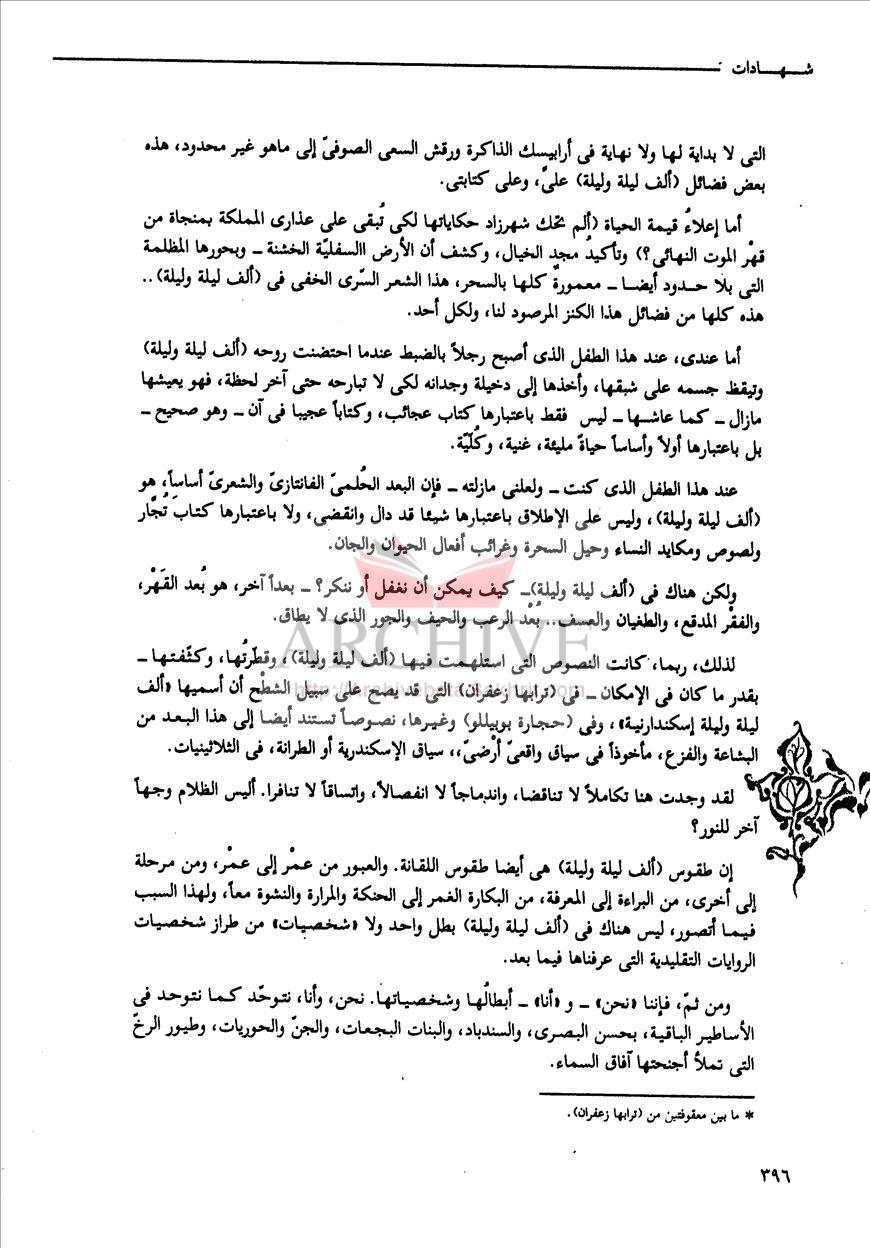 شـهـــادات
التى لا بداية لها ولا نهاية فى أرابيسك الذاكرة ورقش السعى الصوفىّ إلى ماهو غير محدود، هذه
بعض فضائل (ألف ليلة وليلة) علىّ، وعلى كتابتى.
أما إعلاءُ قيمة الحياة (ألم تحْك شهرزاد حكاياتها لكى تُبقى على عذارى المملكة بمنجاة من
قهْر الموت النهائى؟) وتأكيدُ مجد الخيال، وكشف أن الأرض االسفليّة الخشنة ــ وبحورها المظلمة
التى بلا حــدود أيضــا ــ معمورةٌ كلها بالسحر، هذا الشعر السّرى الخفى فى (ألف ليلة وليلة)..
هذه كلها من فضائل هذا الكنز المرصود لنا، ولكل أحد.
أما عندى، عند هذا الطفل الذى أصبح رجلاً بالضبط عندما احتضنت روحه (ألف ليلة وليلة)
وتيقظ جسمه على شبقها، وأخذها إلى دخيلة وجدانه لكى لا تبارحه حتى آخر لحظة، فهو يعيشها
مازال ــ كـمـا عاشـهـا ــ ليس فقط باعتبارها كتاب عجائب، وكتاباً عجيبا فى آن ــ وهو صحيح ــ
بل باعتبارها أولاً وأساساً حياةً مليئة، غنية، وكُلّيّة.
عند هذا الطفل الذى كنت ــ ولعلنى مازلته ــ فإن البعد الحُلمىّ الفانتازىّ والشعرىّ أساساً، هو
(ألف ليلة وليلة)، وليس على الإطلاق باعتبارها شيئا قد دال وانقضى، ولا باعتبارها كتابَ تُجّار
ولصوص ومكايد النساء وحيل السحرة وغرائب أفعال الحيوان والجان.
ولكن هناك فى (ألف ليلة وليلة)ــ كيف يمكن أن نغفل أو ننكر؟ ــ بعداً آخر، هو بُعد القَهْر،
والفقْر المدقع، والطغيان والعسف.. بُعْد الرعب والحيف والجور الذى لا يطاق.
ARCHIVE
لذلك، ربما، كانت النصوص التى استلهمت فيـها (ألف ليلة وليلة)، وقطّرتُها، وكثّفتـها ــ
http://Archivebeta.Sakhrit.com
بقدر ما كان فى الإمكان ــ فى (ترابها زعفران) التى قد يصح على سبيل الشطْح أن أسميها «ألف
ليلة وليلة إسكندارنية»، وفى (حـجـارة بوبيللو) وغيـرها، نصـوصـاً تستند أيضـا إلى هذا البـعـد من
البشاعة والفزع، مأخوذاً فى سياق واقعىّ أرْضىّ،، سياق الإسكندرية أو الطرانة، فى الثلاثينيات.
لقد وجدت هنا تكاملاً لا تناقضا، واندماجاً لا انفصالاً، واتساقاً لا تنافرا. أليس الظلام وجهـاً
آخر للنور؟
إن طقوس (ألف ليلة وليلة) هى أيضا طقوس اللقانة. والعبور من عـمْر إلى عـمْر، ومن مرحلة
إلى أخرى، من البراءة إلى المعرفة، من البكارة الغمر إلى الحنكة والمرارة والنشوة معاً، ولهذا السبب
فيـمـا أتصور، ليس هناك فى (ألف ليلة وليلة) بطل واحد ولا «شخصيات» من طراز شخصيات
الروايات التقليدية التى عرفناها فيما بعد.
ومن ثمّ، فإننا «نحن» ــ و «أنا» ــ أبطالُها وشخـصيـاتها. نحن، وأنا، نتوحّد كـمـا نتوحد فى
الأساطير الباقية، بحسن البصرى، والسندباد، والبنات البجعات، والجنّ والحوريات، وطيور الرخّ
التى تملأ أجنحتها آفاق السماء.
* ما بين معقوفتين من (ترابها زعفران).
٣٩٦